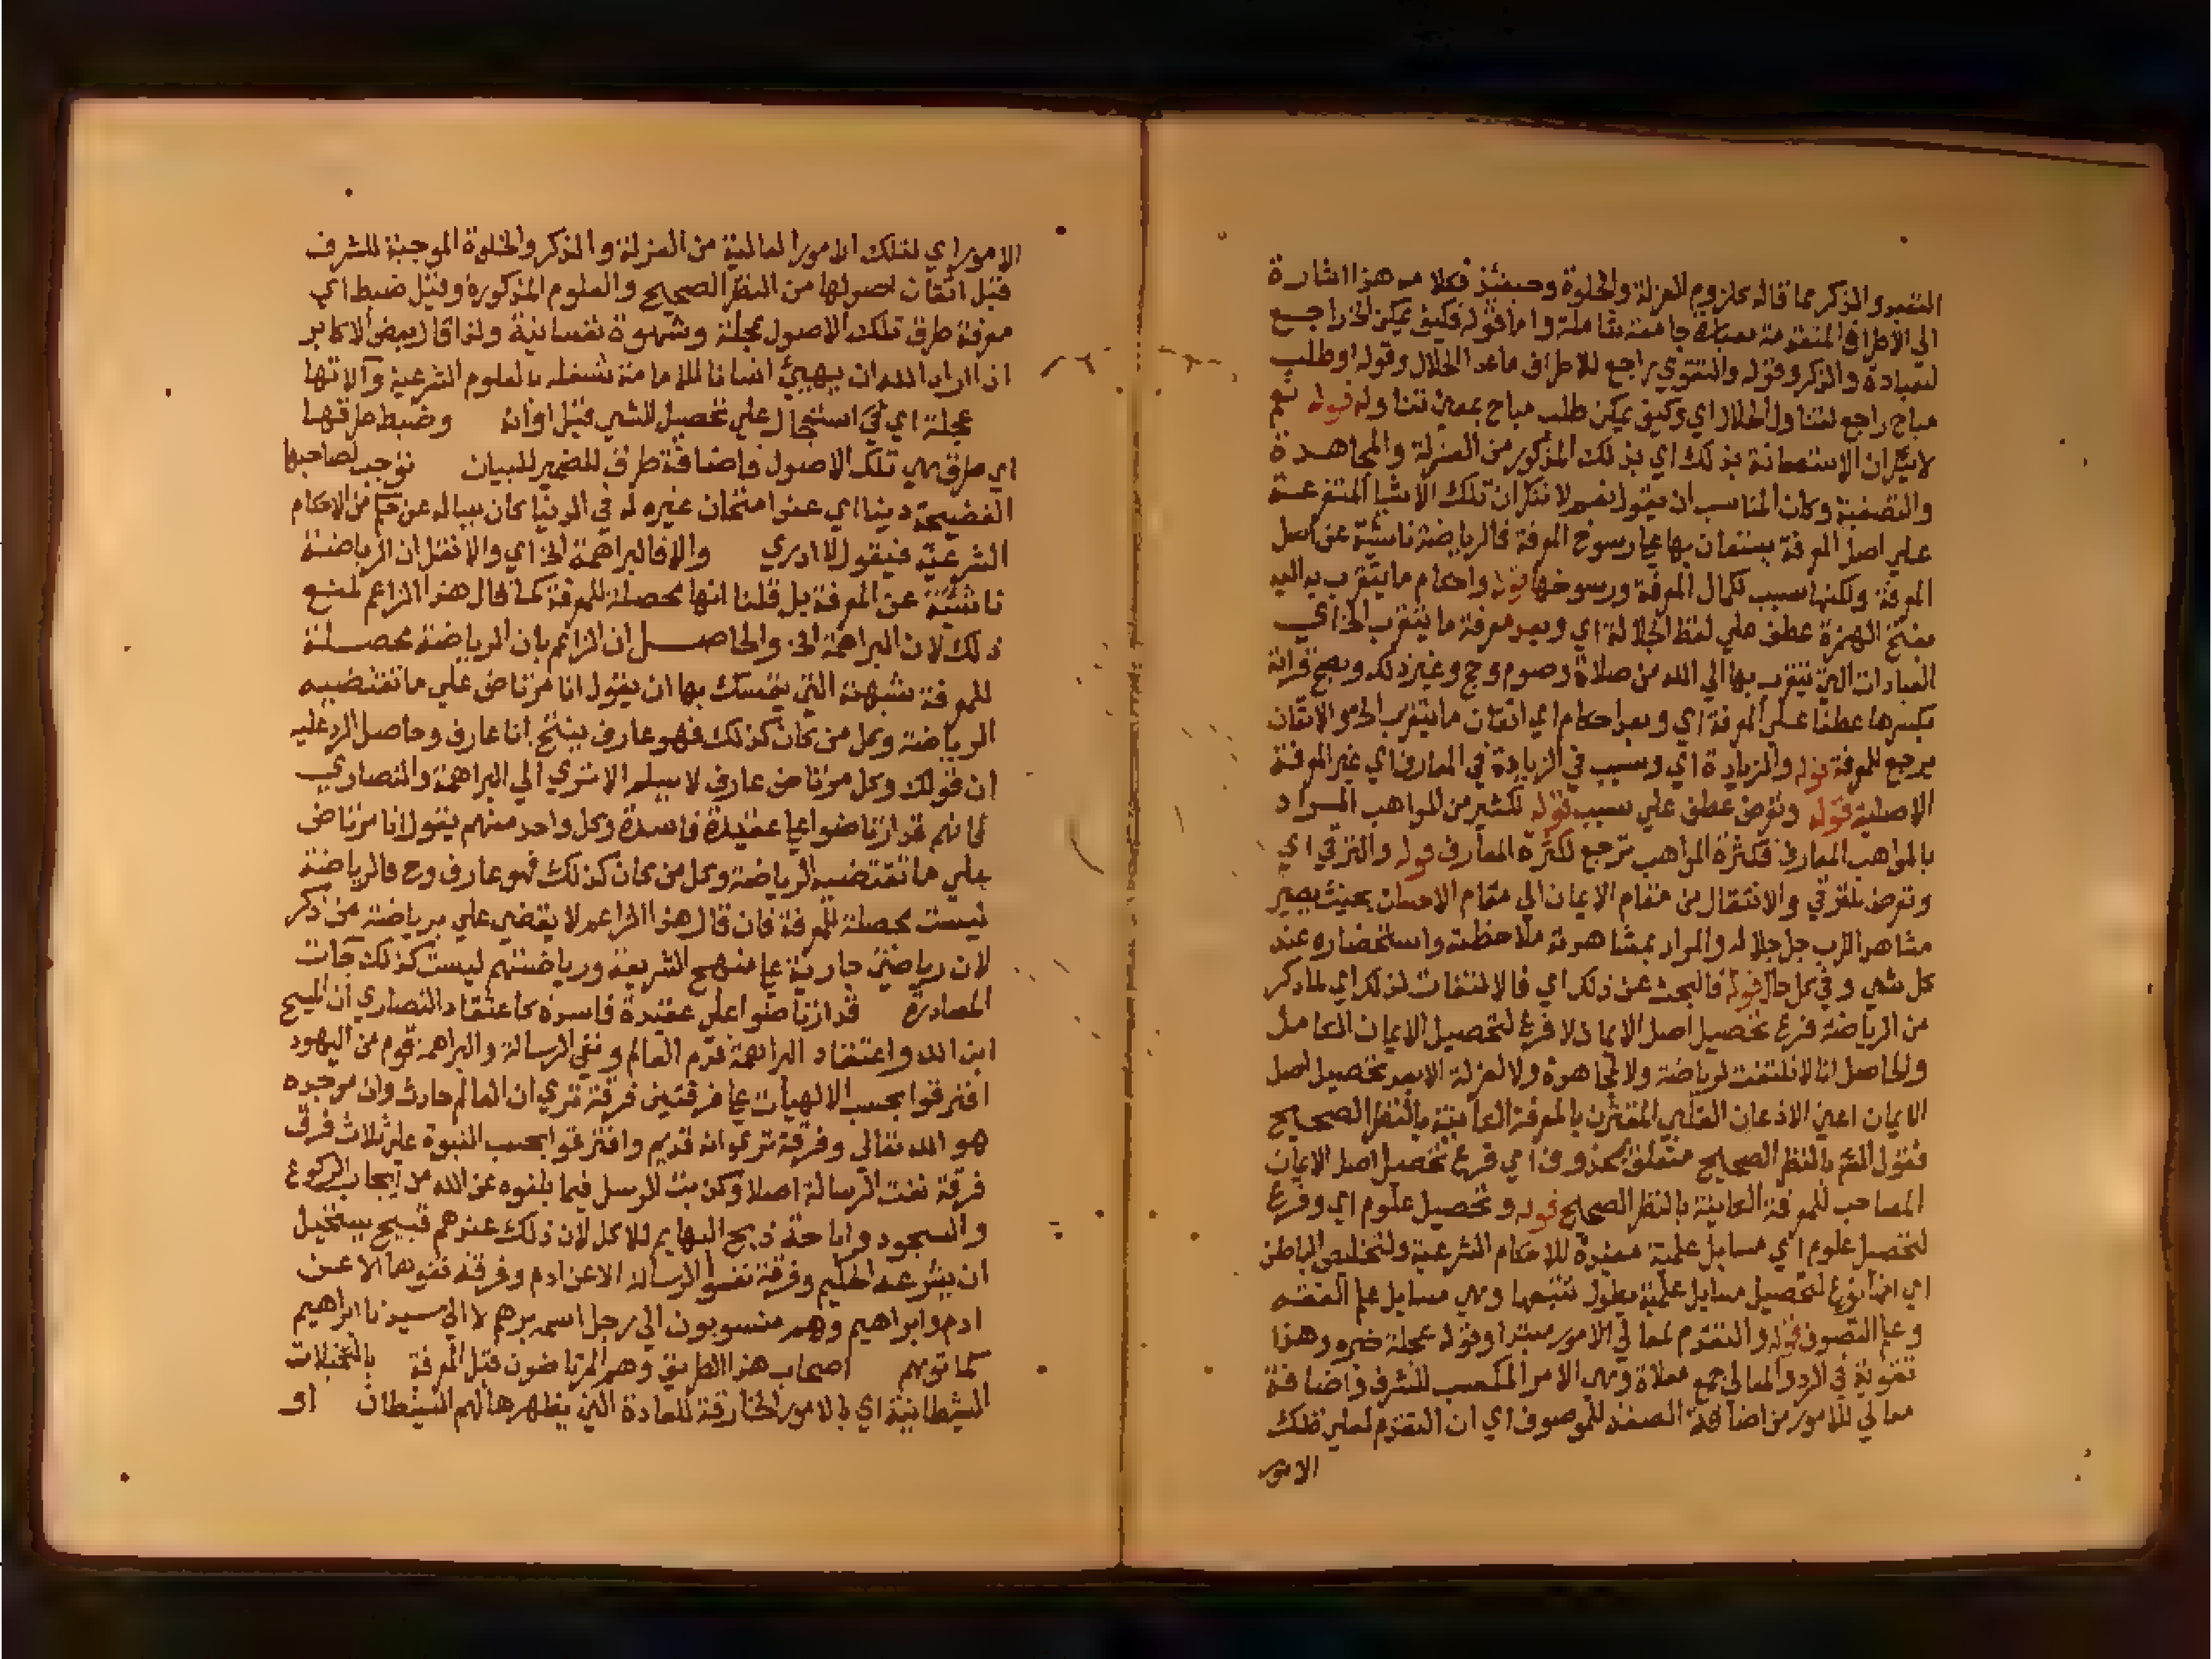 التعبد والذكر مما قاله كلزوم العزلة والخلوة وحينئذ فكلامه هذا اشارة
الى الاطراف المتقدمة بعبارة جامعة شاملة واما قوله فكيف يمكن الخ راجع
لعبادة والذكر وقوله والتقوي راجع للاطراف ماعدا الحلال وقوله او طلب
مباح راجع لتناول الحلال اي وكيف يمكن طلب مباح بمعنى تناوله قوله نعم
لا ينكران الاستعانة بذلك اي بذلك المذكور من العزلة والمجاهدة
والتصفية وكان المناسب ان يقول نعم لا ننكر ان تلك الاشيا المتفرعة
علي اصل المعرفة يستعان بها علي رسوخ المعرفة فالرياضة ناشئة عن اصل
المعرفة ولكنها سبب لكمال المعرفة ورسوخها قوله واحكام ما يتقرب به اليه
بفتح الهمزة عطف علي لفظ الجلالة اي وبعد معرفة ما يتقرب الخ اي
العبادات التي يتقرب بها الي الله من صلاة وصوم وحج وغير ذلك ويصح قراته
بكسرها عطفا علي المعرفة اي وبعد احكام اي اتقان ما يتقرب الخ والاتقان
يرجع للمعرفة قوله والزيادة اي وسبب في الزيادة في المعارف اي غير المعرفة
الاصلية قوله وتعرض عطف علي سبب قوله لكثير من المواهب المراد
بالمواهب المعارف فكثرة المواهب ترجع لكثرة المعارف قوله والترقي اي
وتعرض للترقي والانتقال من مقام الايمان الي مقام الاحسان بحيث يصير
مشاهد الرب جل جلاله والمراد بمشاهدته ملاحظته واستحضاره عند
كل شي وفي كل حال قوله فالبحث عن ذلك اي فالالتفات لذلك اي لما ذكر
من الرياضة فرع تحصيل اصل الايمان لا فرع لتحصيل الايمان الكامل
والحاصل انا لا نلتفت لرياضة ولا لمجاهدة ولا لعزلة الا بعد تحصيل اصل
الايمان اعني الاذعان القلبي المقترن بالمعرفة الكاينة بالنظر الصحيح
فقول الشر بالنظر الصحيح متعلق بمحذوف اي فرع تحصيل اصل الايمان
المصاحب للمعرفة الكاينة بالنظر الصحيح قوله وتحصيل علوم اي وفرع
لتحصيل علوم اي مسايل علمية مفيدة للاحكام الشرعية ولتخليص الباطن
اي انها فرع لتحصيل مسايل علمية يطول تتبعها وهي مسايل علم الفقه
وعلم التصوف قوله والتقدم لمعالي الامور مبتدا وقوله عجلة خبره وهذا
تقوية في الرد والمعالي جمع معلاة وهي الامر المكسب للشرف واضافة
معالي للامور من اضافة الصفة للموصوف اي ان التقدم لعلي تلك
الامور
الامور اي لتلك الامور العالية من العزلة والذكر والخلوة الموجبة للشرف
قبل اتقان اصولها من النظر الصحيح والعلوم المذكورة وقبل ضبط اي
معرفة طرق تلك الاصول عجلة وشهوة نفسانية ولذا قال بعض الاكابر
اذا اراد الله ان يهيئ انسانا للامامة شغله بالعلوم الشرعية وآلاتها
عجلة اي استعجال علي تحصيل الشي قبل اوانه وضبط طرقها
اي طرق هي تلك الاصول فاضافة طرق للضمير للبيان توجب لصاحبها
الفضيحة دينا اي عند امتحان غيره له في الدنيا كان يساله عن حكم من الاحكام
الشرعية فيقول لا ادري والا فالبراهمة الخ اي والا نقل ان الرياضة
ناشئة عن المعرفة بل قلنا انها محصلة للمعرفة كما قال هذا الزاعم لمنع
ذلك لان البراهمة الخ والحاصل ان الزاعم بان الرياضة محصلة
للمعرفة شبهته التي يتمسك بها ان يقول انا مرتاض علي ما تقتضيه
الرياضة وكل من كان كذلك فهو عارف ينتج انا عارف وحاصل الرد عليه
ان قولك وكل مرتاض عارف لا يسلم الا تري الي البراهمة والنصاري
فانهم قد ارتاضوا علي عقيدة فاسدة وكل واحد منهم يقول انا مرتاض
علي ما تقتضيه الرياضة وكل من كان كذلك فهو عارف وح فالرياضة
ليست محصلة للمعرفة فان قال هذا الزاعم لا يقضي علي برياضة من ذكر
لان رياضتي جارية علي منهج الشريعة ورياضتهم ليست كذلك جات
المصادرة قد ارتاضوا علي عقيدة فاسدة كاعتقاد النصاري ان المسيح
ابن الله واعتقاد البراهمة قدم العالم ونفي الرسالة والبراهمة قوم من اليهود
افترقوا بحسب الالهيات علي فرقتين فرقة تري ان العالم حادث وان موجده
هو الله تعالي وفرقة تري انه قديم وافترقوا بحسب النبوة علي ثلاث فرق
فرقة نفت الرسالة اصلا وكذبت الرسل فيما بلغوه عن الله من ايجاب الركوع
والسجود واباحة ذبح البهايم للاكل لان ذلك عندهم قبيح يستحيل
ان يشرعه الحكيم وفرقة نفوا الرسالة الا عن ادم وفرقة نفوها الا عن
ادم وابراهيم وهم منسوبون الي رجل اسمه برهم لا الي سيدنا ابراهيم
كما توهم اصحاب هذا الطريق وهم المرتاضون قبل المعرفة بالتخيلات
الشيطانية اي بالامور الخارقة للعادة التي يظهرها لهم الشيطان او